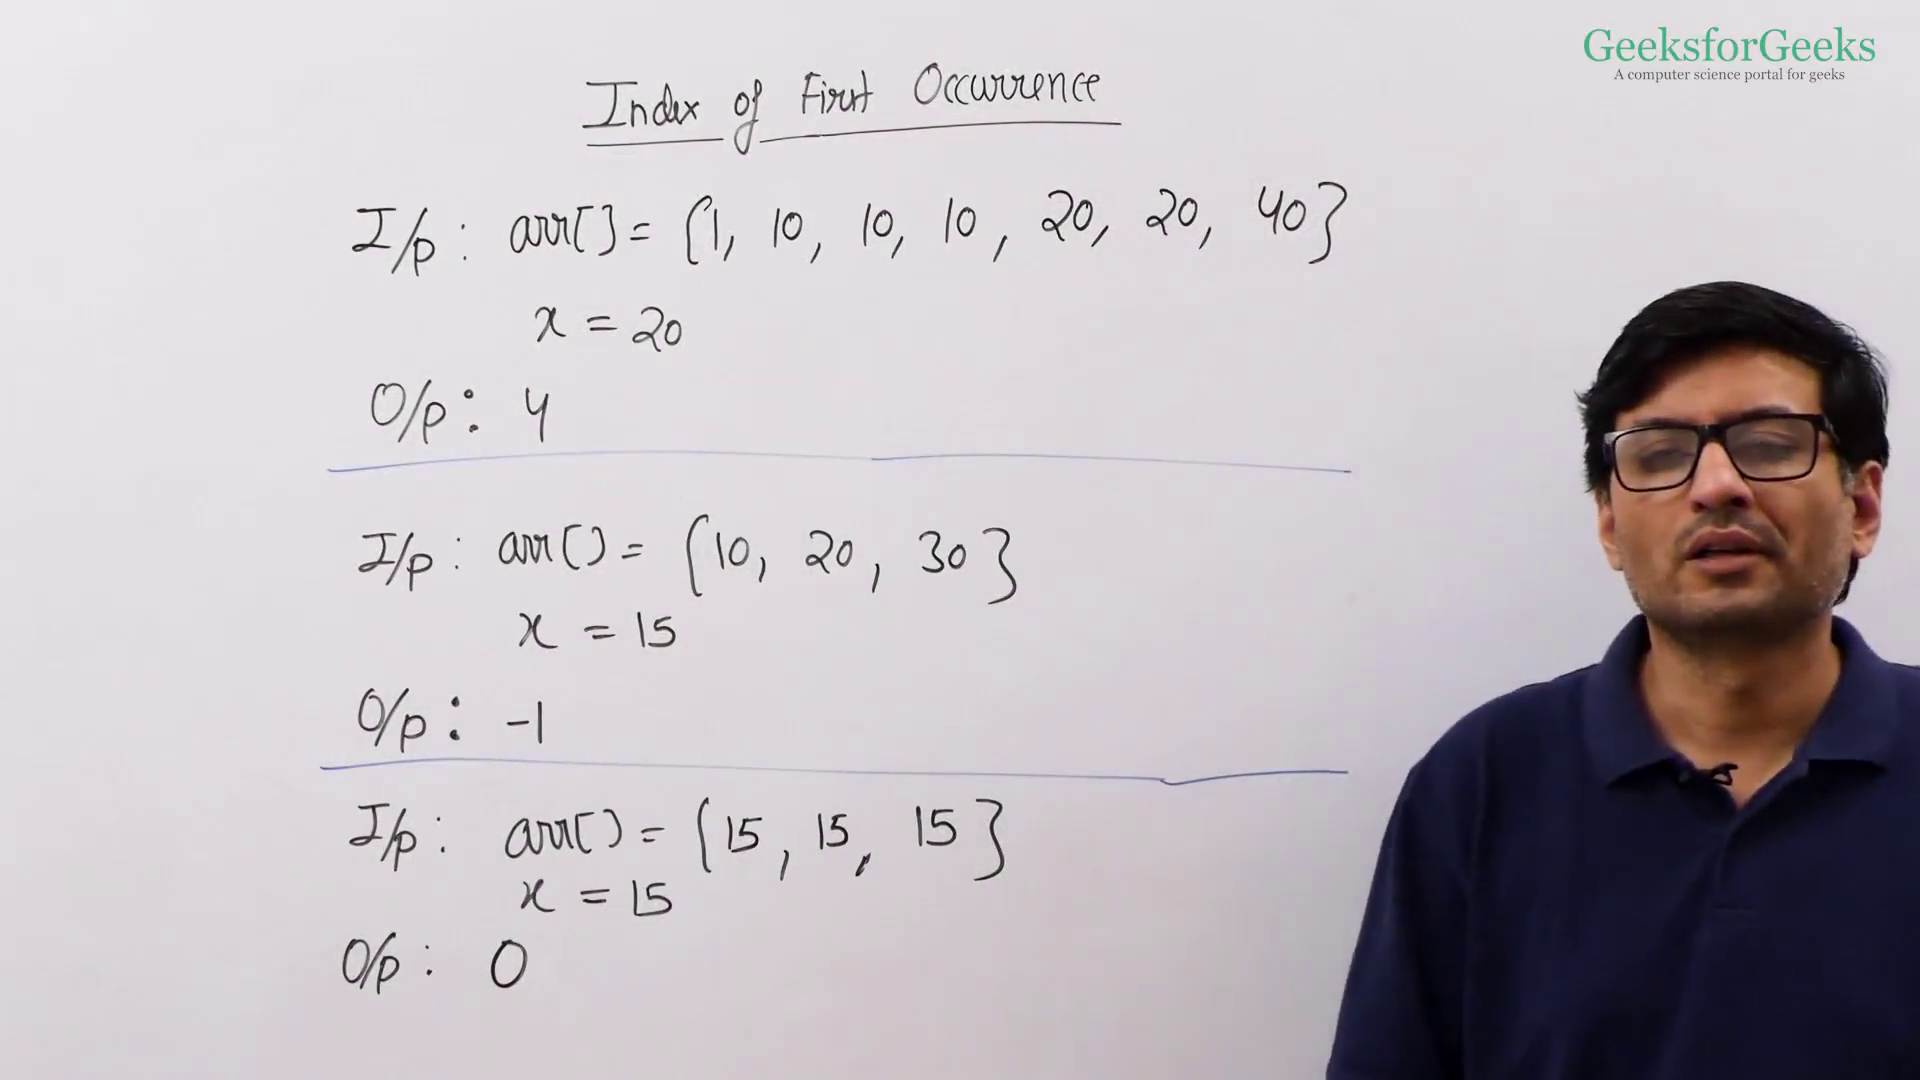 GeeksforGeeks
A computer science portal for geeks
Index of First Occurrence
I/p: arr[] = {1, 10, 10, 10, 20, 20, 40}
x = 20
O/p: 4
I/p: arr[] = {10, 20, 30}
x = 15
O/p: -1
I/p: arr[] = {15, 15, 15}
x = 15
O/p: 0